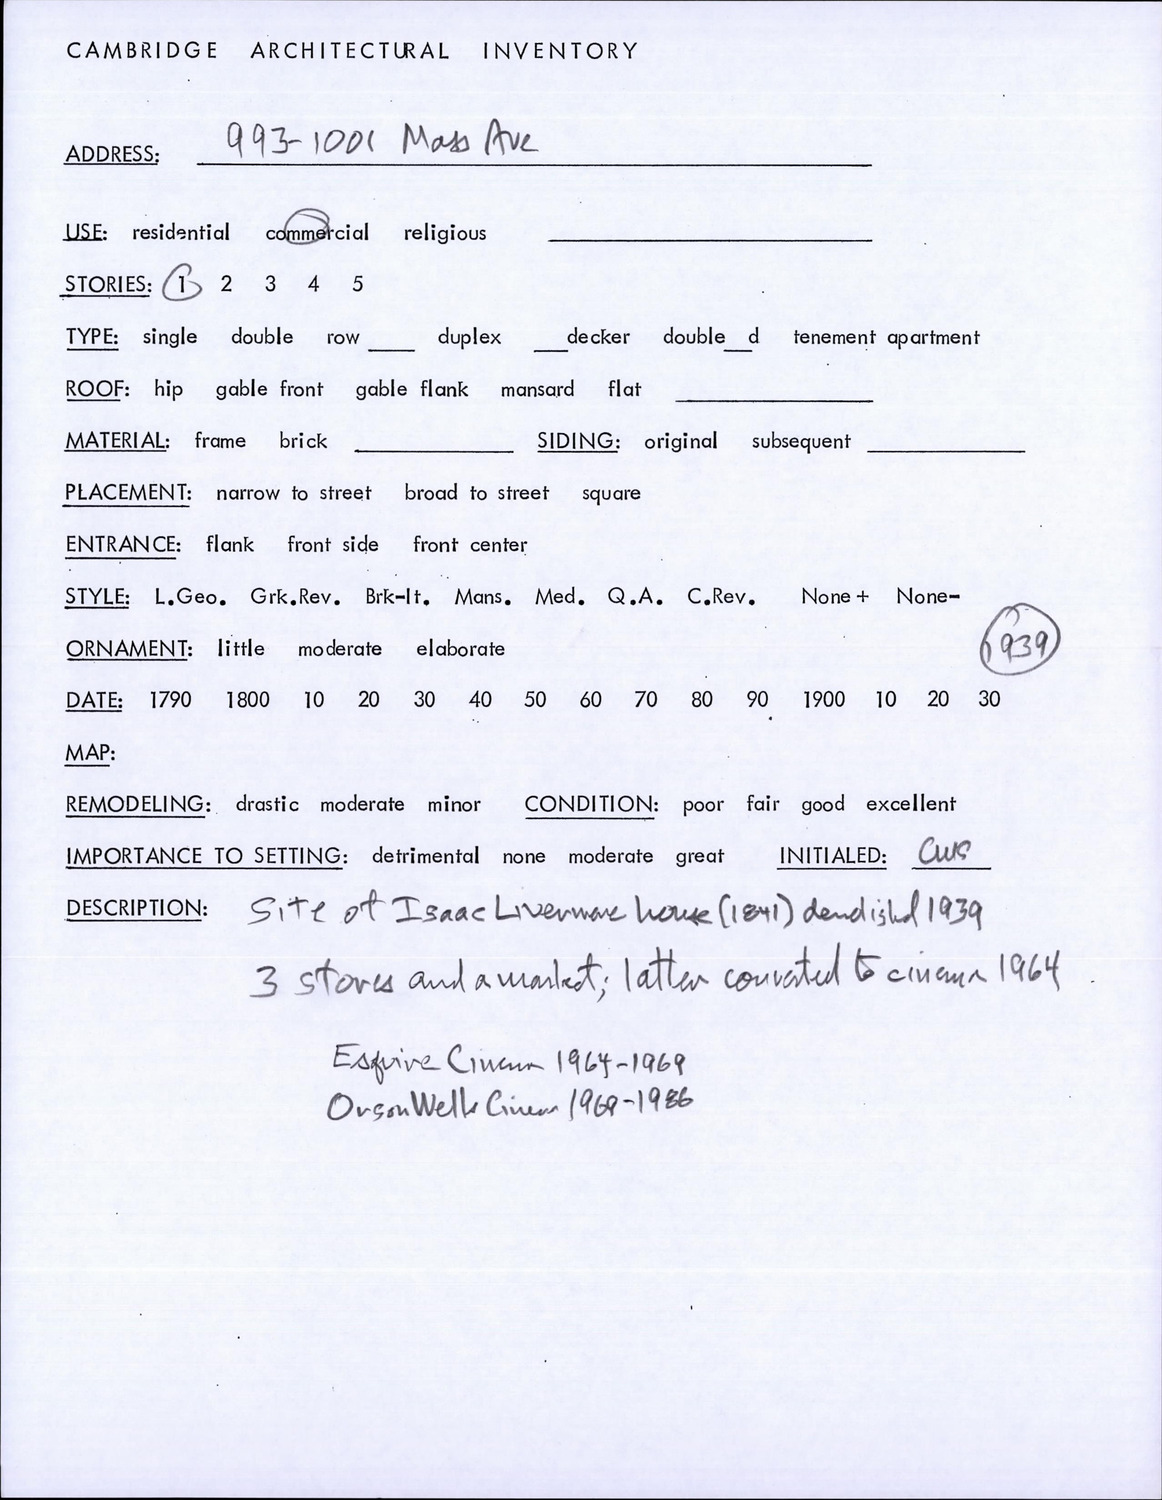 CAMBRIDGE ARCHITECTURAL INVENTORY
ADDRESS: 993-1001 Mass Ave
USE: residential commercial religious
STORIES: 1 2 3 4 5
TYPE: single double row ____ duplex ___decker double__d tenement apartment
ROOF: hip gable front gable flank mansard flat
MATERIAL: frame brick ____ SIDING: original subsequent ____
PLACEMENT: narrow to street broad to street square
ENTRANCE: flank front side front center
STYLE: L.Geo. Grk.Rev. Brk-It. Mans. Med. Q.A. C.Rev. None+ None-
ORNAMENT: little moderate elaborate
1939
DATE: 1790 1800 10 20 30 40 50 60 70 80 90 1900 10 20 30
MAP:
REMODELING: drastic moderate minor CONDITION: poor fair good excellent
IMPORTANCE TO SETTING: detrimental none moderate great INITIALED:
DESCRIPTION: Site of Isaac Livermore house (1841) demolished 1939
3 stores and a market; latter converted to cinema 1964
Esquire Cinema 1964-1969
Orson Wells Cinema 1969-1986